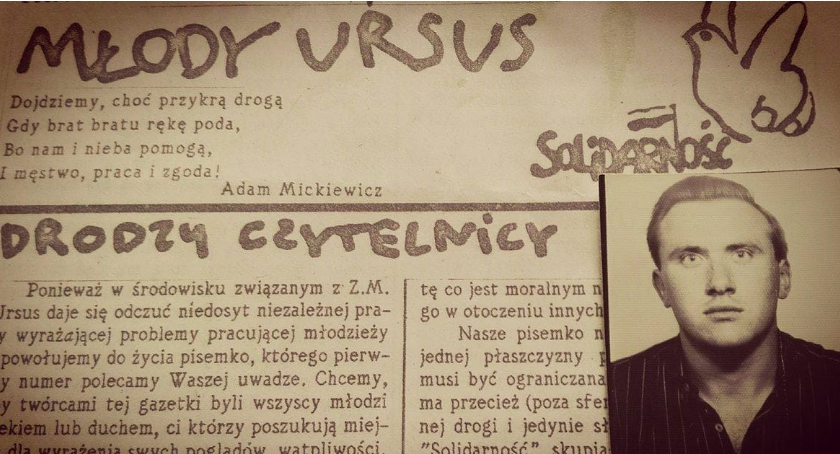 MŁODY URSUS
Dojdziemy, choć przykrą drogą
Gdy brat bratu rękę poda,
Bo nam i nieba pomogą,
I męstwo, praca i zgoda!
Adam Mickiewicz
SOLIDARNOŚĆ
DRODZY CZYTELNICY
Ponieważ w środowisku związanym z Z.M.
Ursus daje się odczuć niedosyt niezależnej pra-
y wyrażającej problemy pracującej młodzieży
powołujemy do życia pisemko, którego pierw-
y numer polecamy Waszej uwadze. Chcemy,
y twórcami tej gazetki byli wszyscy młodzi
ekiem lub duchem, ci którzy poszukują miej-
dla wyrażenia swych poglądów, wątpliwości,
tę co jest moralnym n
go w otoczeniu innych
Nasze pisemko n
jednej płaszczyzny p
musi być ograniczana
ma przecież (poza sfer
nej drogi i jedynie sł
"Solidarność", skupia